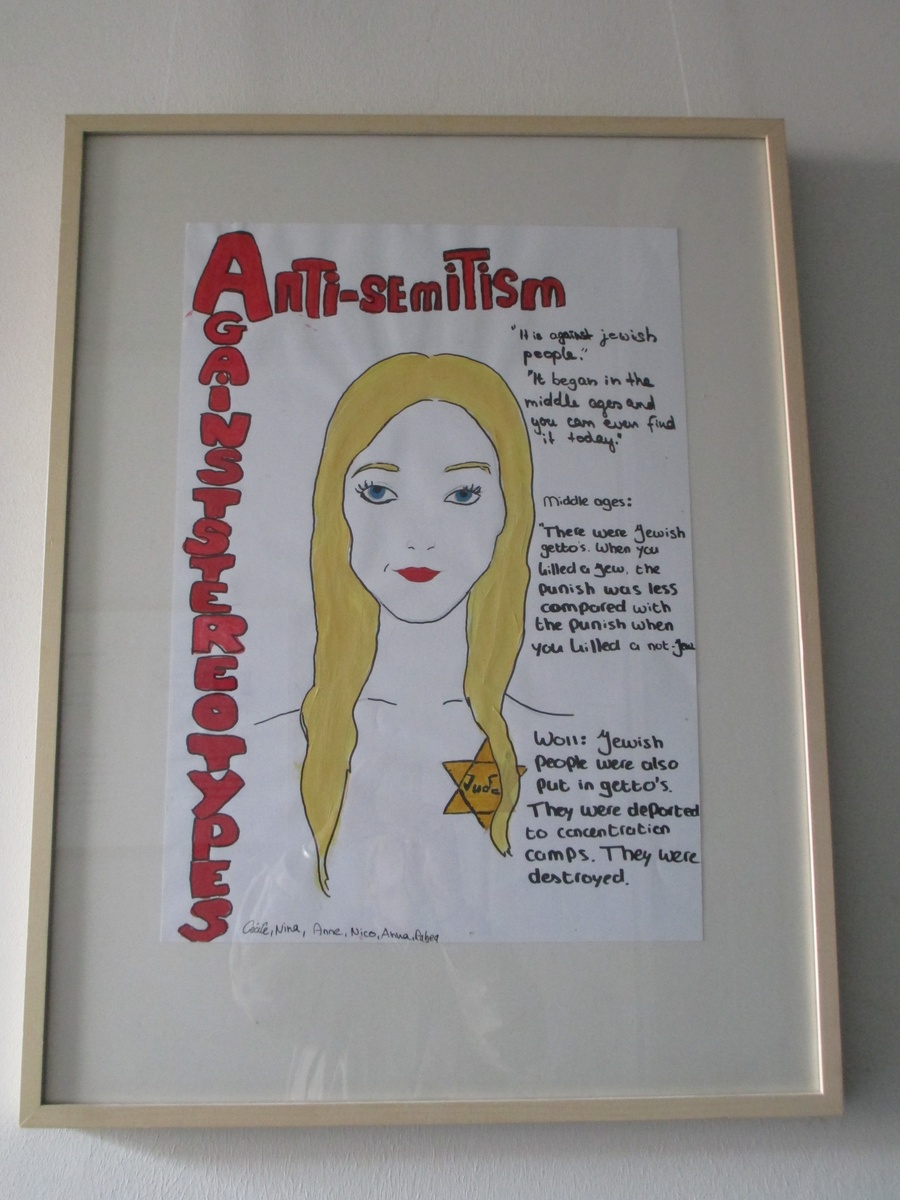 ANTi-SEmiTism
AGAiNST STEREOTYPES
"It is against jewish
people."
"It began in the
middle ages and
you can even find
it today."
Middle ages:
"There were Jewish
getto's. When you
killed a Jew. the
punish was less
compared with
the punish when
you killed a not-Jew
Jude
WoII: Jewish
people were also
put in getto's.
They were deported
to concentration
camps. They were
destroyed.
Nina, Anne, Nico, Anna,